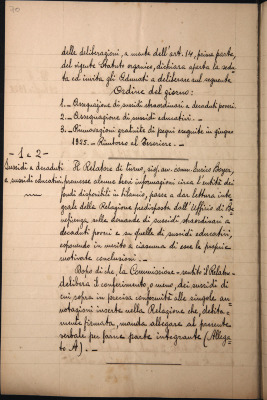 delle deliberazioni, a mente dell'art. 14, prima parte,
del vigente Statuto organico, dichiara aperta la sedu-
ta ed invita gli adunati a deliberare sul seguente
Ordine del giorno:
1. - Assegnazione di sussidi straordinari a decaduti poveri.
2. - Assegnazione di sussidi educativi. -
3. - Rinnovazioni gratuite di pegni eseguite in giugno
1935. - Rimborso al Tesoriere. -
- 1 e 2 -
Sussidi a decaduti
e sussidi educativi.
Il Relatore di turno, sig. avv. comm. Enrico
premesse alcune brevi informazioni circa l'entità dei
fondi disponibili in bilancio, passa a dar lettura inte-
grale della Relazione predisposta dall'Ufficio di Be-
neficenza sulle domande di sussidi straordinari a
decaduti poveri e su quelle di sussidi educativi,
esponendo in merito a ciascuna di esse le proprie
motivate conclusioni. -
Dopo di che, la Commissione - sentito il Relatore -
delibera il conferimento o meno, dei sussidi di
cui sopra in precisa conformità alle singole an-
notazioni inserte nella Relazione che, debita-
mente firmata, manda allegare al presente
verbale per farne parte integrante (Allega-
to A). -